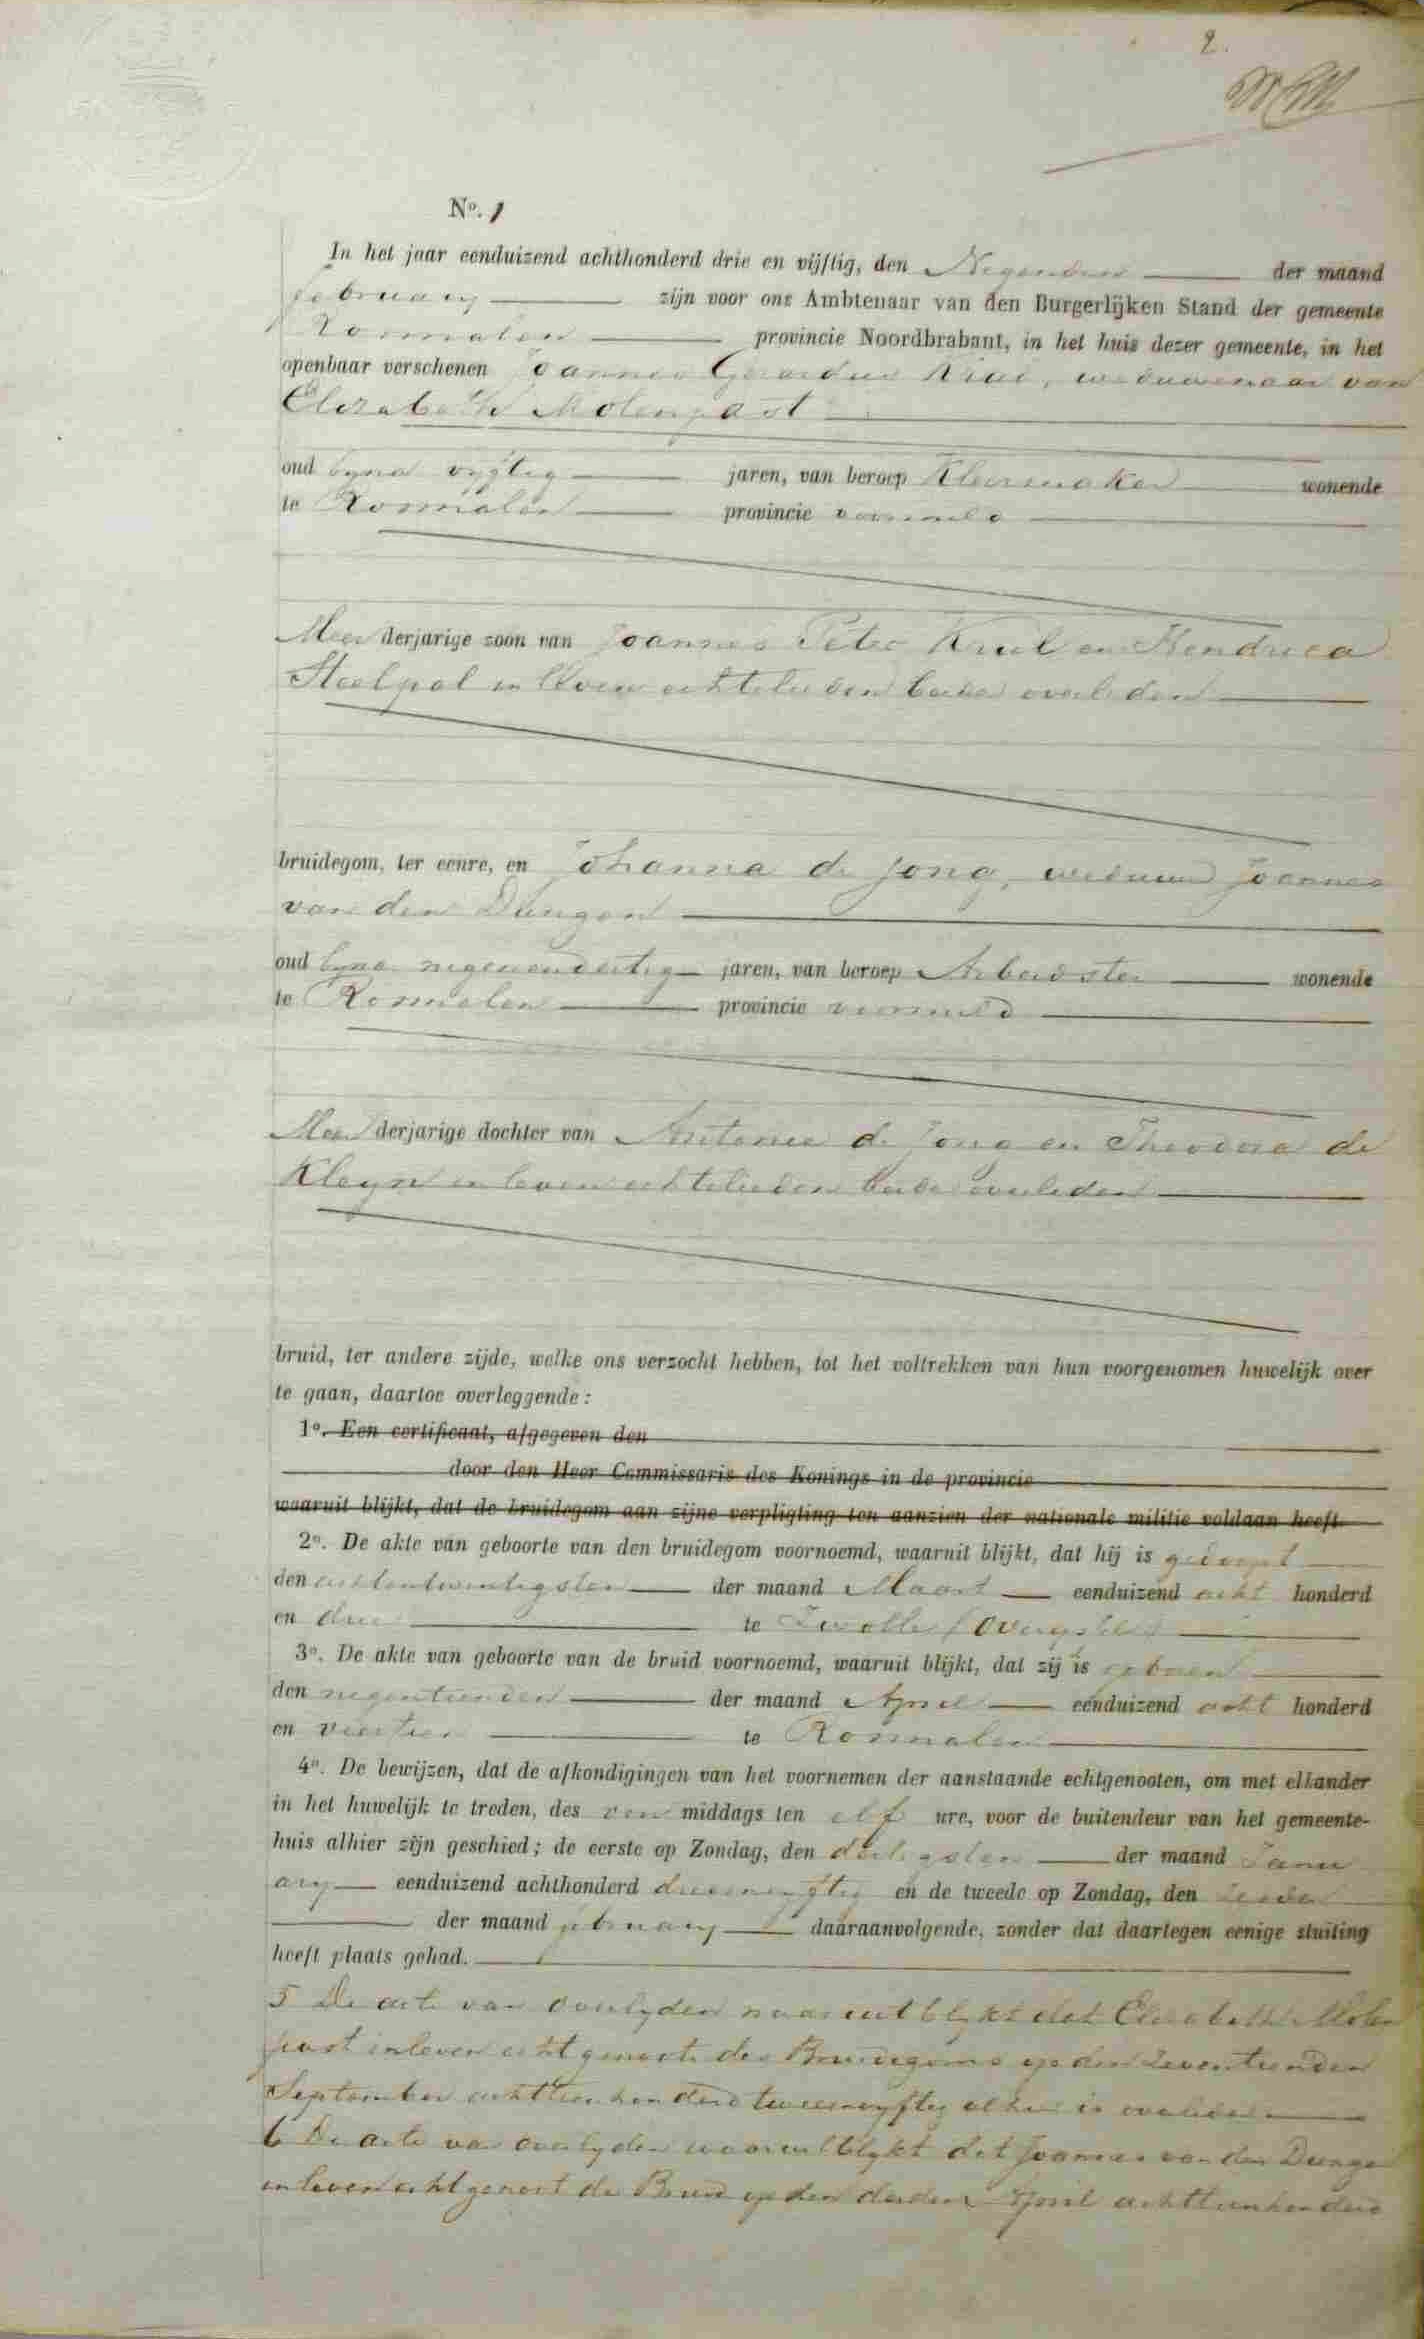 2.
No. 1
In het jaar eenduizend achthonderd drie en vijftig, den Negenden der maand
februarij zijn voor ons Ambtenaar van den Burgerlijken Stand der gemeente
Rosmalen provincie Noordbrabant, in het huis dezer gemeente, in het
openbaar verschenen Joannes Gerardus Krul, weduwenaar van
Elizabeth Molenpast
oud byna vyftig jaren, van beroep Kleermaker wonende
te Rosmalen provincie voormeld
Meerderjarige zoon van Joannes Peter Krul en Hendrica
Stoelpol in leven echtelieden beide overleden
bruidegom, ter eenre, en Johanna de Jong, weduwe Joannes
van den Dungen
oud byna negenendertig jaren, van beroep Arbeidster wonende
te Rosmalen provincie voormeld
Meerderjarige dochter van Antonie de Jong en Theodora de
Kleyn in leven echtelieden beide overleden
bruid, ter andere zijde, welke ons verzocht hebben, tot het voltrekken van hun voorgenomen huwelijk over
te gaan, daartoe overleggende:
1o. Een certificaat, afgegeven den
door den Heer Commissaris des Konings in de provincie
waaruit blijkt, dat de bruidegom aan zijne verpligting ten aanzien der nationale militie voldaan heeft.
2o. De akte van geboorte van den bruidegom voornoemd, waaruit blijkt, dat hij is gedoopt
den achtentwintigsten der maand Maart eenduizend acht honderd
en drie te Zwolle (Overyssel)
3o. De akte van geboorte van de bruid voornoemd, waaruit blijkt, dat zij is geboren
den negentienden der maand April eenduizend acht honderd
en veertien te Rosmalen
4o. De bewijzen, dat de afkondigingen van het voornemen der aanstaande echtgenooten, om met elkander
in het huwelijk te treden, des voor middags ten elf ure, voor de buitendeur van het gemeente-
huis alhier zijn geschied; de eerste op Zondag, den dertigsten der maand Janu
ary eenduizend achthonderd drieenvyftig en de tweede op Zondag, den zesden
der maand februarij daaraanvolgende, zonder dat daartegen eenige stuiting
heeft plaats gehad.
5 De acte van overlyden waaruit blykt dat Elizabeth Molen
past in leven echtgenoote des Bruidegoms op den zeventienden
September achttienhonderd tweeenvyftig alhier is overleden
6 De acte van overlyden waaruit blykt dat Joannes van den Dunge
in leven echtgenoot der Bruid op den derden April achttienhonderd